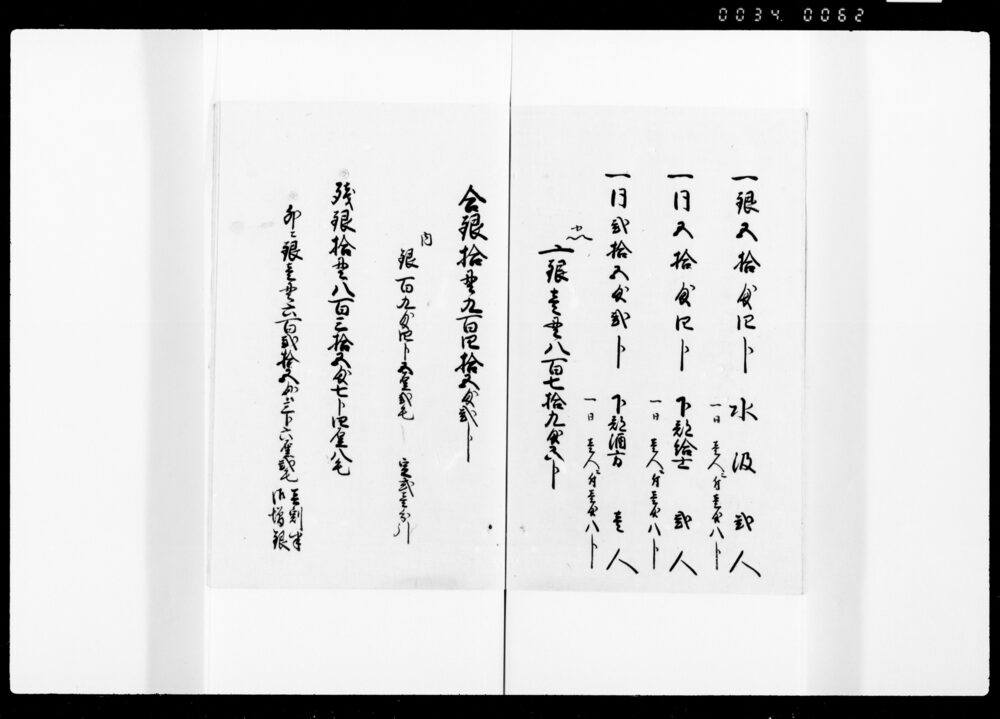 0034 0062
一銀五拾匁四分 水汲 弐人
一日 壱人ニ付壱匁八分
一同五拾匁四分 下部給士 弐人
一日 壱人ニ付壱匁八分
一同弐拾五匁弐分 下部酒方 壱人
一日 壱人ニ付壱匁八分
銀壱貫八百七拾九匁
合銀拾貫九百四拾五匁弐分
内
銀百九匁四分五厘弐毛 定式壱分引
残銀拾貫八百三拾五匁七分四厘八毛
外ニ銀壱貫六百弐拾五匁三分六厘弐毛 壱割半
御増銀